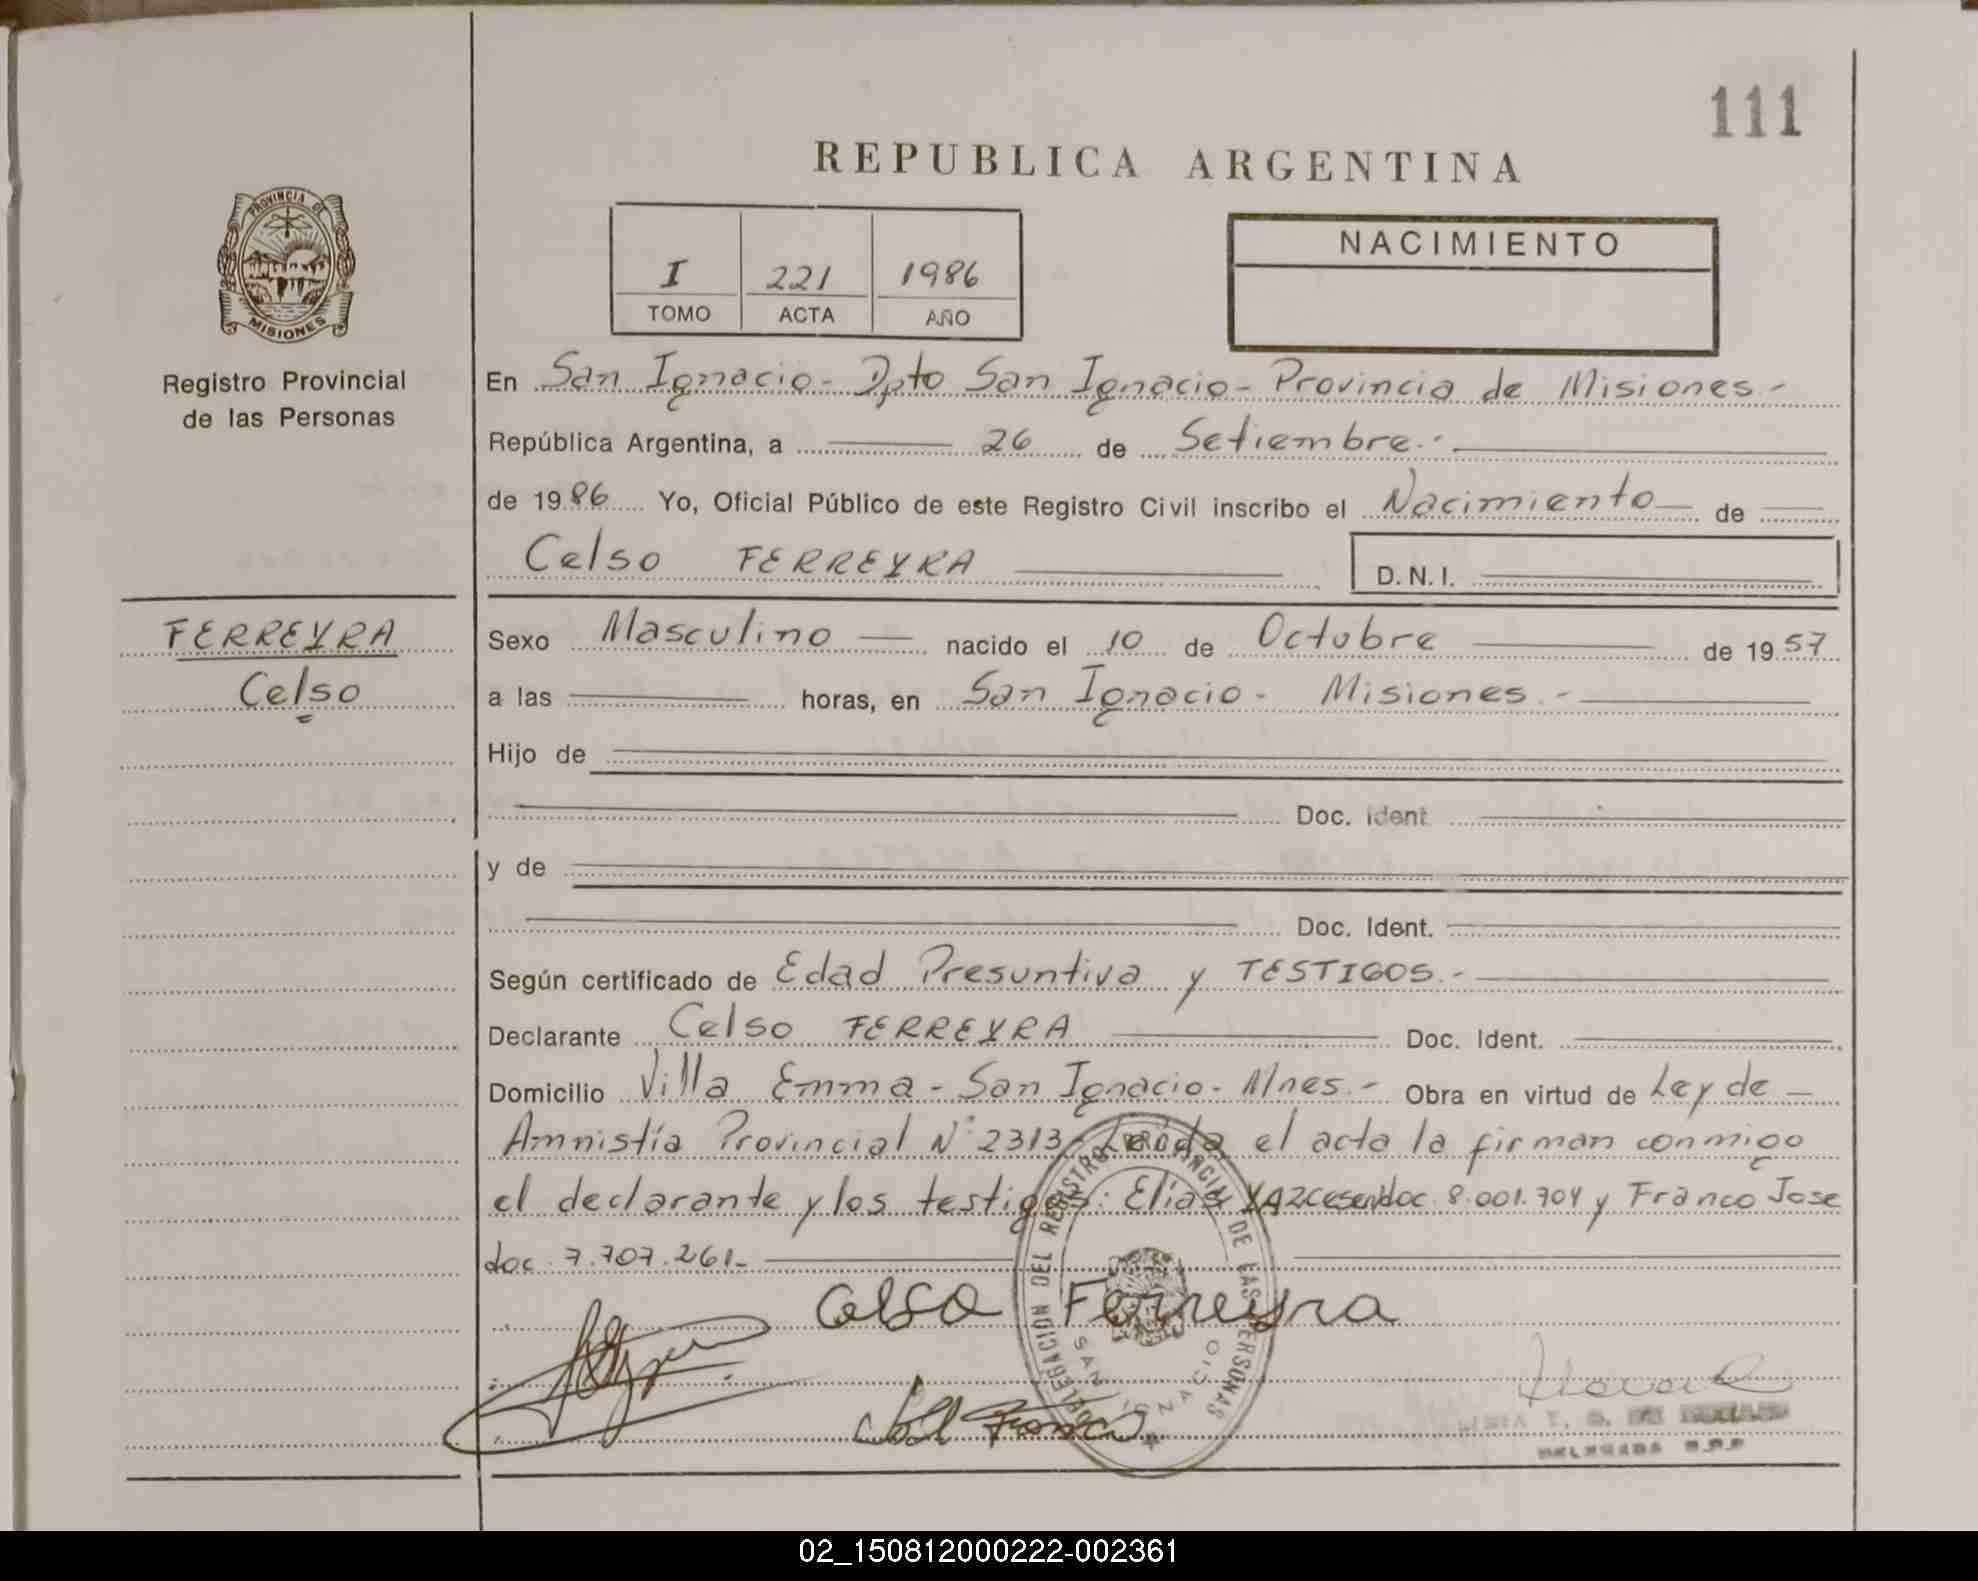 111
REPUBLICA ARGENTINA
PROVINCIA DE
MISIONES
Registro Provincial
de las Personas
I 221 1986
TOMO ACTA AÑO
NACIMIENTO
En San Ignacio - Dpto San Ignacio - Provincia de Misiones.-
República Argentina, a 26 de Setiembre.-
de 1986 Yo, Oficial Público de este Registro Civil inscribo el Nacimiento de
Celso FERREYRA D.N.I.
FERREYRA
Celso
Sexo Masculino nacido el 10 de Octubre de 1957
a las horas, en San Ignacio - Misiones.-
Hijo de
Doc. Ident.
y de
Doc. Ident.
Según certificado de Edad Presuntiva y TESTIGOS.-
Declarante Celso FERREYRA Doc. Ident.
Domicilio Villa Emma - San Ignacio - Mnes.- Obra en virtud de Ley de
Amnistía Provincial N° 2313 - Leída el acta la firman conmigo
el declarante y los testigos: Elias doc. 8.001.704 y Franco Jose
doc. 7.707.261-
Celso Ferreyra
DELEGACION DEL REGISTRO PROVINCIAL DE LAS PERSONAS
SAN IGNACIO
DELEGADA R.P.P
02_150812000222-002361